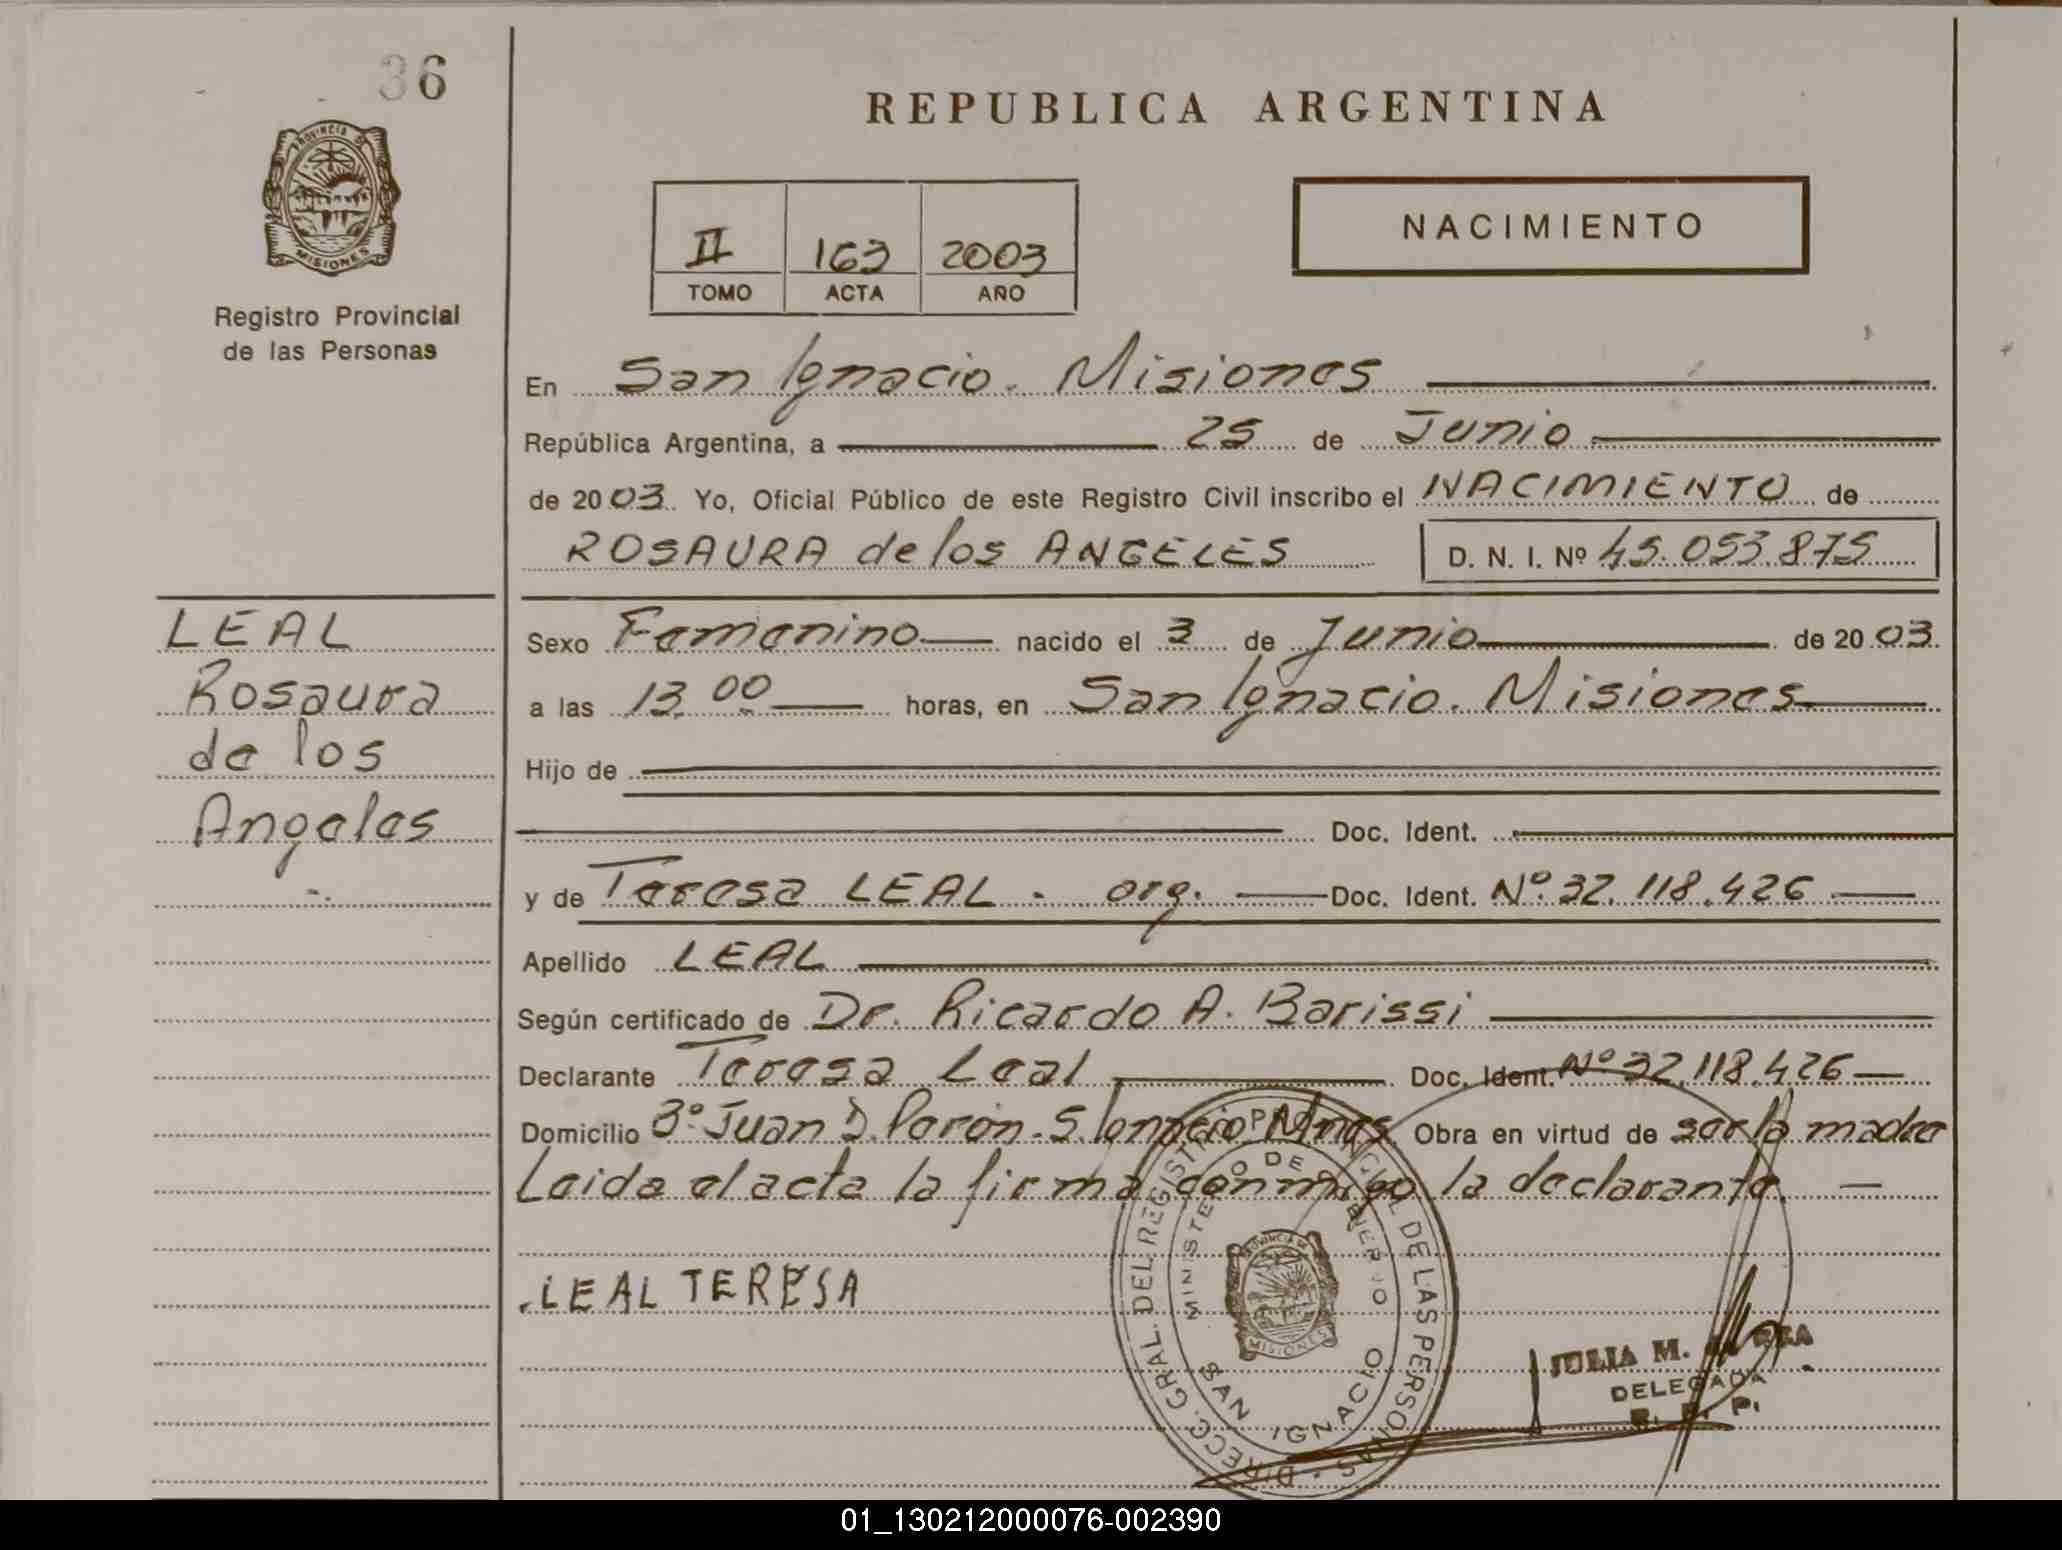 36
PROVINCIA DE
MISIONES
Registro Provincial
de las Personas
REPUBLICA ARGENTINA
II 163 2003
TOMO ACTA AÑO
NACIMIENTO
En San Ignacio. Misiones
República Argentina, a 25 de Junio
de 2003. Yo, Oficial Público de este Registro Civil inscribo el NACIMIENTO de
ROSAURA de los ANGELES D. N. I. Nº 45.053.875
LEAL
Rosaura
de los
Angeles
Sexo Femenino nacido el 3 de Junio de 2003.
a las 13.00 horas, en San Ignacio. Misiones
Hijo de
Doc. Ident.
y de Teresa LEAL - arg. Doc. Ident. Nº 32.118.426
Apellido LEAL
Según certificado de Dr. Ricardo A. Barissi
Declarante Teresa Leal Doc. Ident. Nº 32.118.426
Domicilio Bº Juan D. Perón - S. Ignacio Mnes. Obra en virtud de ser la madre
Leida el acta la firma conmigo la declarante.
LEAL TERESA
DIRECC. GRAL. DEL REGISTRO PROVINCIAL DE LAS PERSONAS
MINISTERIO DE GOBIERNO
SAN IGNACIO
PROVINCIA DE
MISIONES
JULIA M.
DELEGADA
R. P. P.
01_130212000076-002390